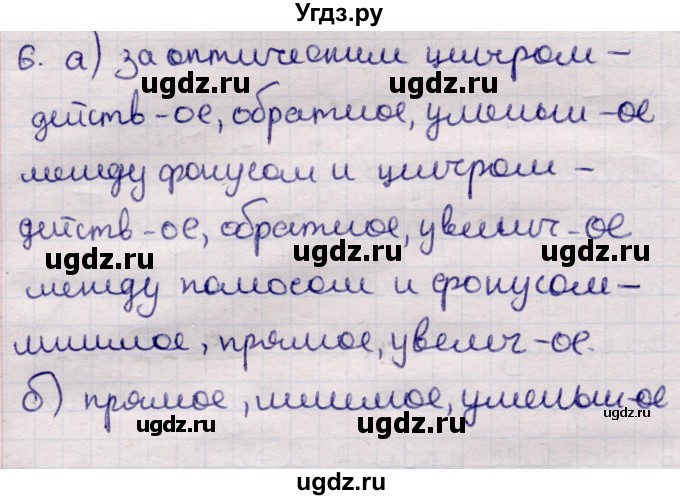 Угдз.ру
6. а) за оптическим центром –
действ-ое, обратное, уменьш-ое
между фокусом и центром –
действ-ое, обратное, увелич-ое
между полюсом и фокусом –
мнимое, прямое, увелич-ое.
б) прямое, мнимое, уменьш-ое
ugdz.ru
ugdz.ru
ugdz.ru
ugdz.ru
ugdz.ru
ugdz.ru
ugdz.ru
ugdz.ru
ugdz.ru
ugdz.ru
ugdz.ru
ugdz.ru
ugdz.ru